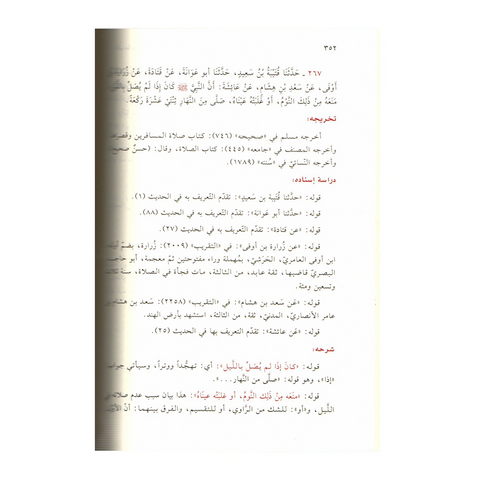 ٣٥٢
٢٦٧ - حَدَّثَنَا قُتَيْبَةُ بْنُ سَعِيدٍ، حَدَّثَنَا أَبو عَوَانَةَ، عَنْ قَتَادَةَ، عَنْ زُرَارَةَ بْنِ
أَوْفَى، عَنْ سَعْدِ بْنِ هِشَامٍ، عَنْ عَائِشَةَ: أَنَّ النَّبِيَّ ﷺ كَانَ إِذَا لَمْ يُصَلِّ بِاللَّيْلِ
مَنَعَهُ مِنْ ذَلِكَ النَّوْمُ، أَوْ غَلَبَتْهُ عَيْنَاهُ، صَلَّى مِنَ النَّهَارِ ثِنْتَيْ عَشْرَةَ رَكْعَةً.
تخريجه:
أخرجه مسلم في «صحيحه» (٧٤٦): كتاب صلاة المسافرين وقصرها
وأخرجه المصنف في «جامعه» (٤٤٥): كتاب الصلاة، وقال: (حسنٌ صحيح)
وأخرجه النَّسائيّ في «سُننه» (١٧٨٩).
دراسة إسناده:
قوله: «حدَّثنا قُتَيْبة بن سَعيدٍ»: تقدَّم التَّعريف به في الحديث (١).
قوله: «حدَّثنا أبو عَوانة»: تقدَّم التَّعريف به في الحديث (٨٨).
قوله: «عن قتادة»: تقدَّم التَّعريف به في الحديث (٢٧).
قوله: «عن زُرارة بن أوفى»: في «التقريب» (٢٠٠٩): زُرارة، بضمّ أوَّله
ابن أوفى العامريّ، الحَرَشيّ، بمُهملة وراء مفتوحتين ثمَّ معجمة، أبو حاجب
البصريّ قاضيها، ثقة عابد، من الثالثة، مات فجأة في الصلاة، سنة ثلاث
وتسعين ومئة.
قوله: «عَن سَعد بن هشام»: في «التقريب» (٢٢٥٨): سَعد بن هشام بن
عامر الأنصاريّ، المدنيّ، ثقة، من الثالثة، استشهد بأرض الهند.
قوله: «عَن عائشة»: تقدَّم التَّعريف بها في الحديث (٢٥).
شرحه:
قوله: «كانَ إذَا لَم يُصَلِّ بِاللَّيل»: أي: تهجُّداً ووتراً، وسيأتي جواب
«إذا»، وهو قوله: «صلَّى من النَّهار...».
قوله: «منَعَه مِنْ ذَلِكَ النَّوْمُ، أو غَلبَتْه عَينَاهُ»: هذا بيان سبب عدم صلاته في
اللَّيل، و«أو»: للشك من الرَّاوي، أو للتقسيم، والفرق بينهما: أنَّ الأوَّل